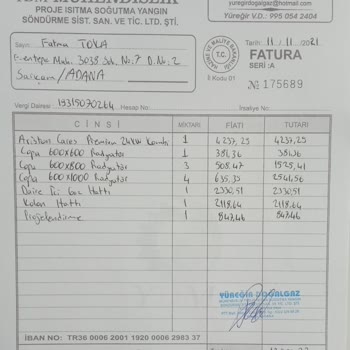 MÜHENDİSLİK
PROJE ISITMA SOĞUTMA YANGIN
SÖNDÜRME SİST. SAN. VE TİC. LTD. ŞTİ.
yuregirdogalgaz@hotmail.com
Yüreğir V.D.: 995 054 2404
Sayın: Fatma TOKA
Esentepe Mah. 3038 Sok. No:7 D.No:2
Sarıçam/ADANA
T.C.
İl.Kodu 01
Tarih: 11/11/2021
FATURA
SERİ: A
№ 175689
Vergi Dairesi: 19315070264 Hesap No: İrsaliye No:
CİNSİ MİKTARI FİATI TUTARI
Ariston Cares Premium 24kW Kombi 1 4237,25 4237,25
Copa 600x600 Radyatör 1 381,36 381,36
Copa 600x800 Radyatör 3 508,47 1525,41
Copa 600x1000 Radyatör 4 635,35 2541,56
Daire İçi Gaz Hattı 1 2330,51 2330,51
Kolon Hattı 1 2118,64 2118,64
Projelendirme 1 847,46 847,46
YÜREĞİR DOĞALGAZ
IBAN NO: TR36 0006 2001 1920 0006 2983 37